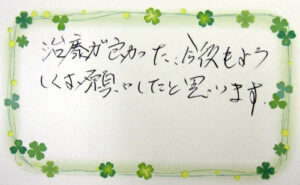 治療が良かった、今後もよう
しくお願いしたと思います。